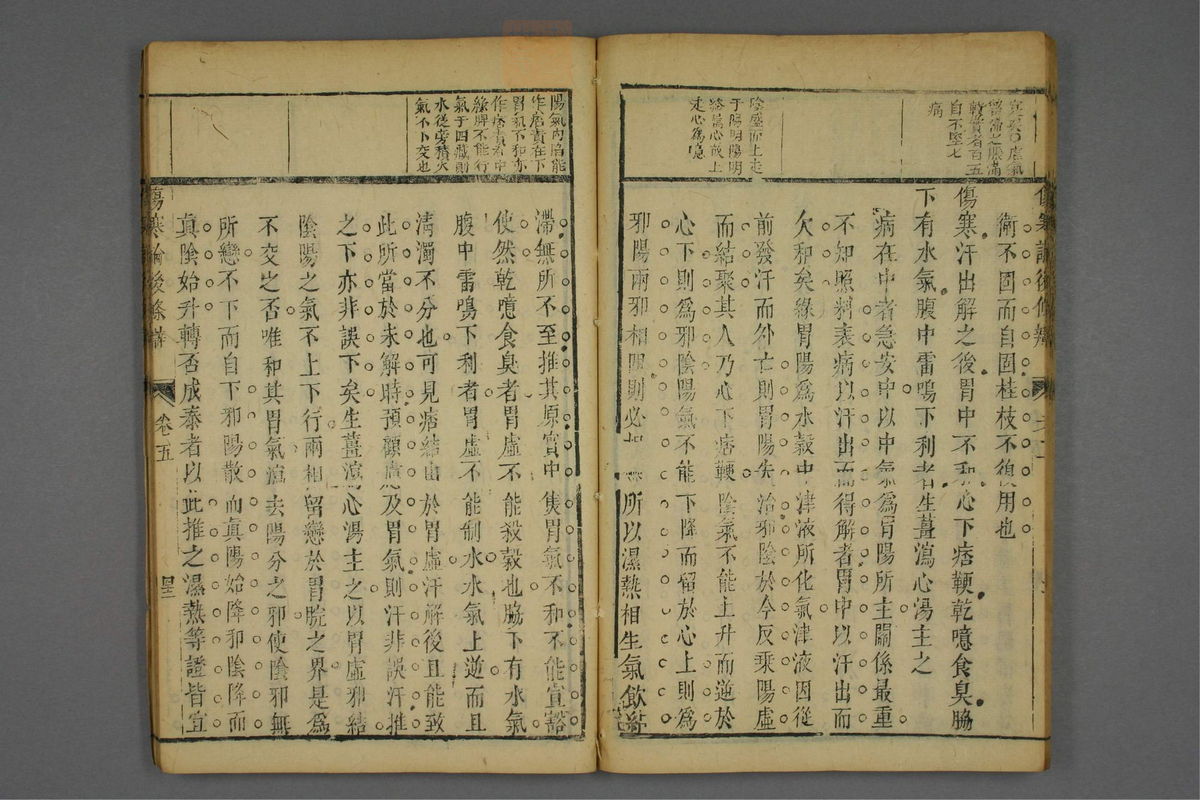 衛不固而自固桂枝不復用也
傷寒汗出解之後胃中不和心下痞鞕乾噫食臭脇
下有水氣腹中雷鳴下利者生薑瀉心湯主之
病在中者急安中以中氣爲胃陽所主關係最重
不知照料表病以汗出而得解者胃中以汗出而
欠和矣緣胃陽爲水穀中津液所化氣津液因從
前發汗而外亡則胃陽失治邪陰於今反乘陽虛
而結聚其人乃心下痞鞕陰氣不能上升而逆於
心下則爲邪陰陽氣不能下降而留於心上則爲
邪陽兩邪相團則必 所以濕熱相生氣飲
陰盛而上走
于陽明陽明
絡屬心故上
走心爲噫
留滯之脹滿
較實者百五
自不堅七
病
滯無所不至推其原實中焦胃氣不和不能宣豁
使然乾噫食臭者胃虛不能殺穀也脇下有水氣
腹中雷鳴下利者胃虛不能制水水氣上逆而且
清濁不分也可見痞結由於胃虛汗解後且能致
此所當於未解時預顧慮及胃氣則汗非誤汗推
之下亦非誤下矣生薑瀉心湯主之以胃虛邪結
陰陽之氣不上下行兩相留戀於胃脘之界是爲
不交之否唯和其胃氣瀉去陽分之邪使陰邪無
所戀不下而自下邪陽散而真陽始降邪陰降而
真陰始升轉否成泰者以此推之濕熱等證皆宜
陽氣內陷能
作痞責在下
胃氣下和亦
作痞責在中
緣脾不能行
氣于四藏則
水從旁積火
氣不下交也
傷寒論後條辨
卷五